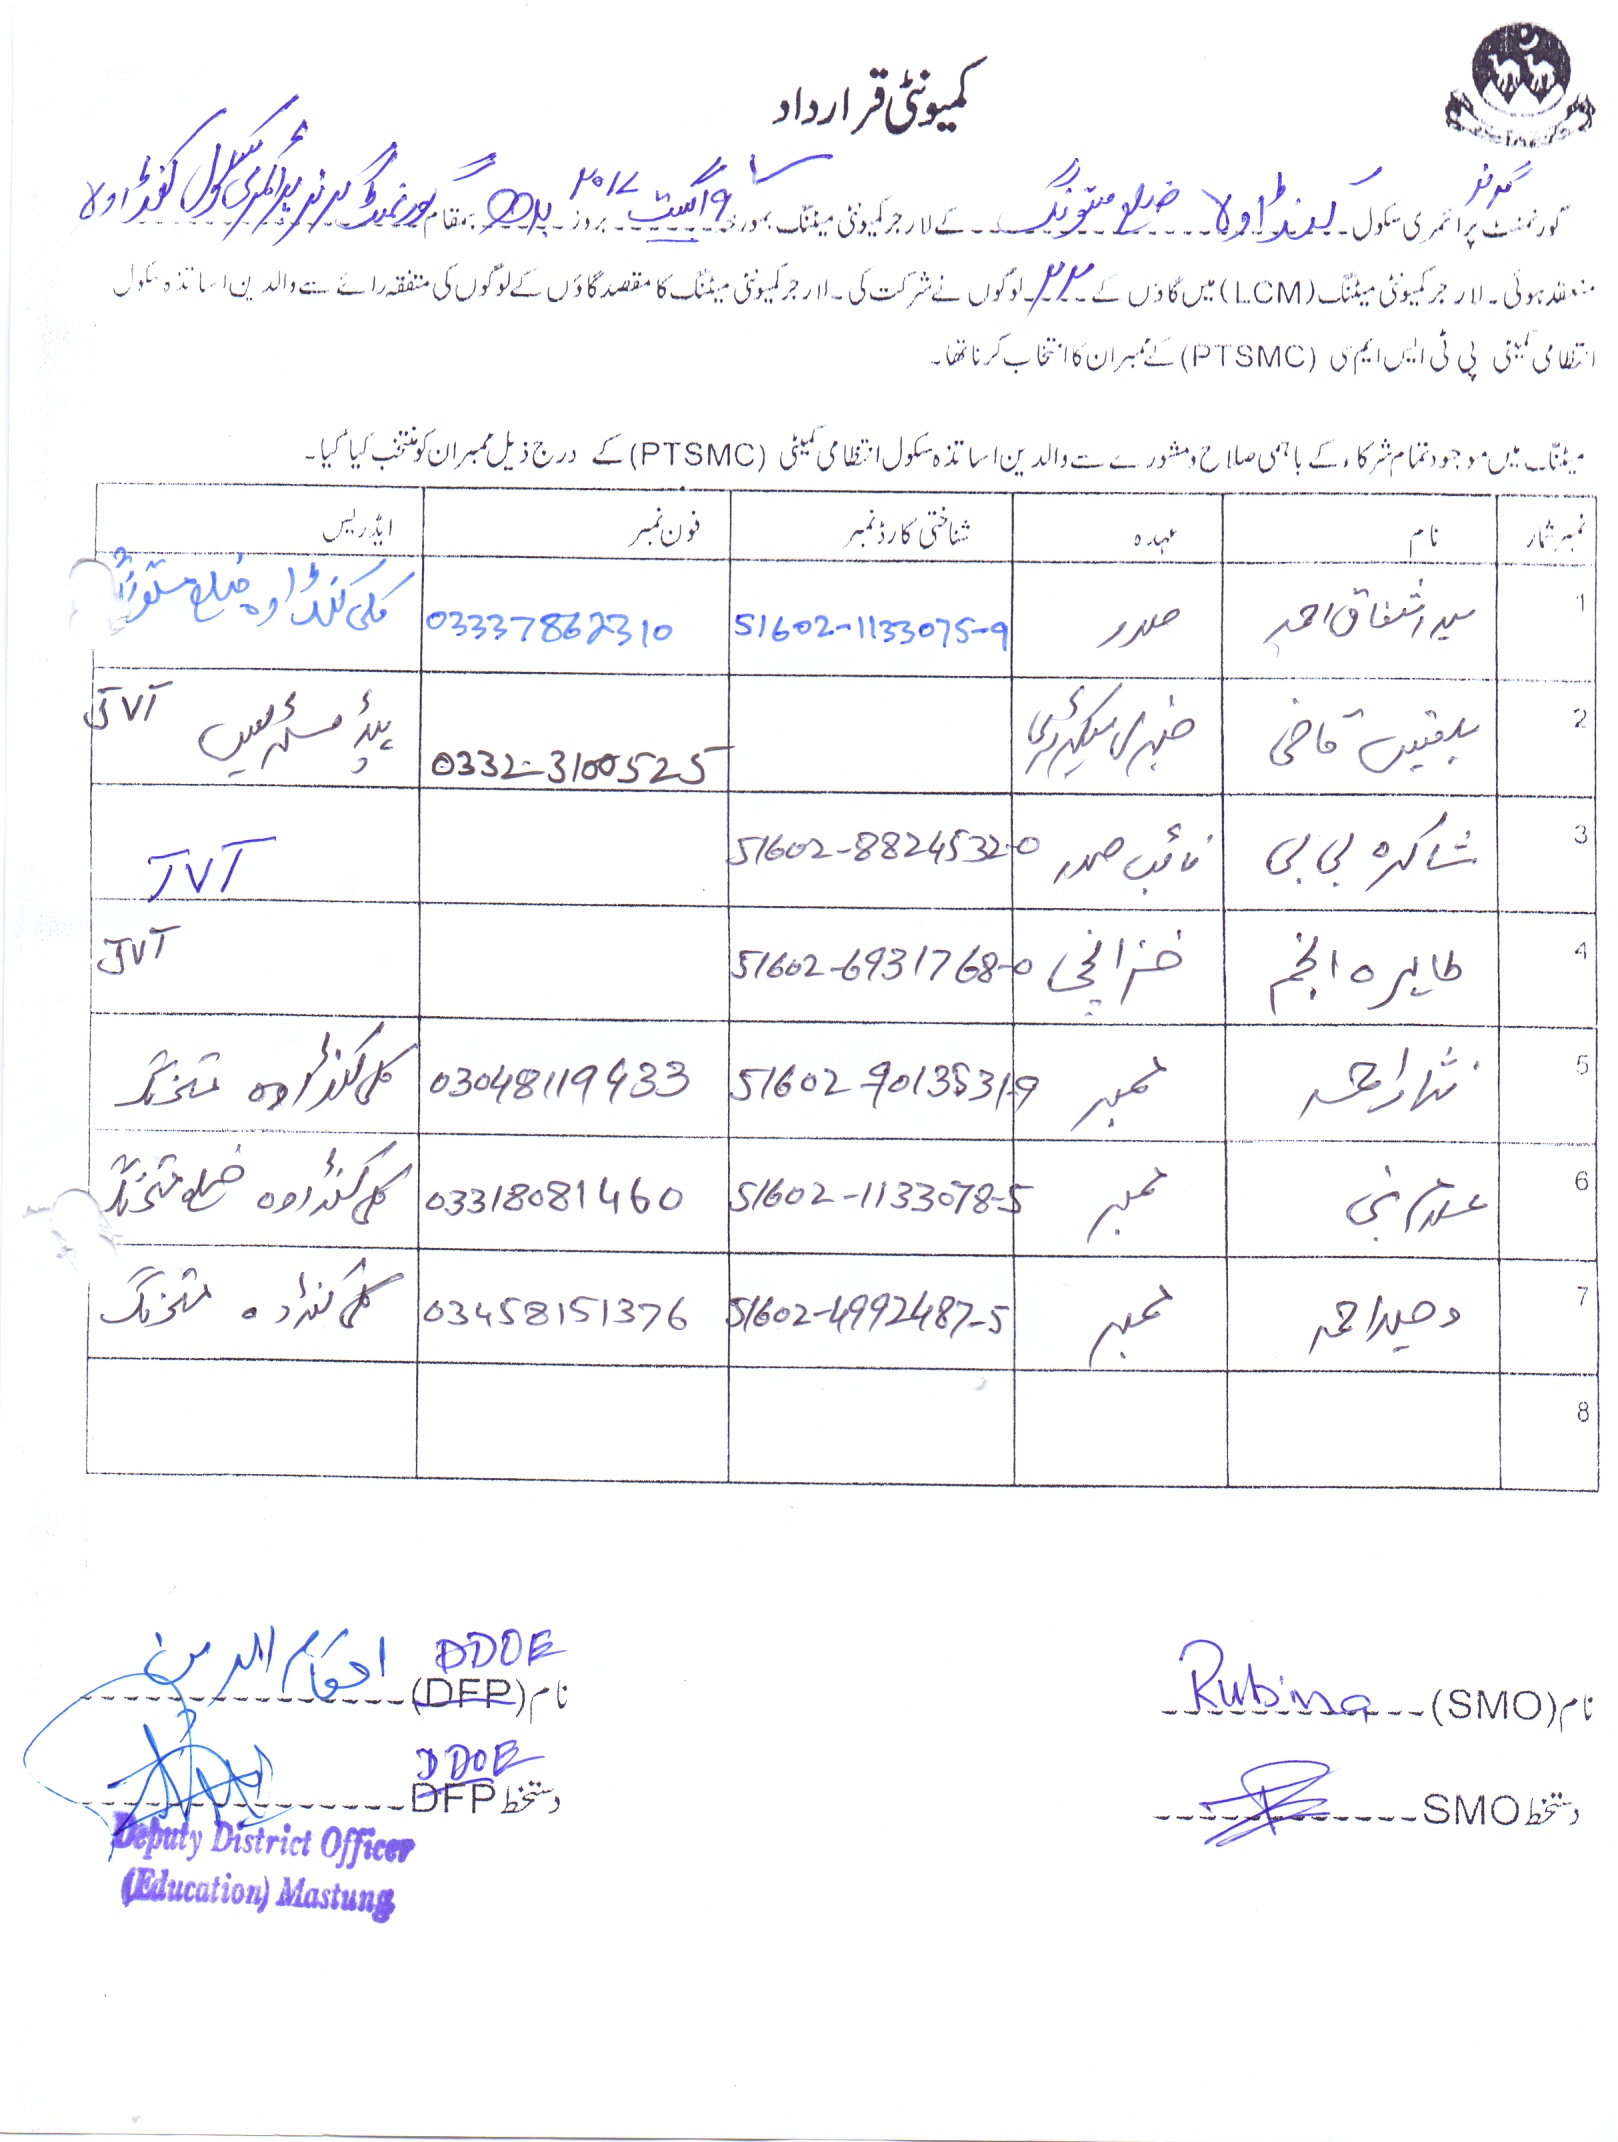 کمیونٹی قرارداد
گرلز
گورنمنٹ پرائمری سکول کنڈاولا ضلع مستونگ کے لارجر کمیونٹی میٹنگ بمورخہ ۹ اگست ۲۰۱۷ بروز بدھ بمقام گورنمنٹ گرلز پرائمری سکول کنڈاولا
منعقد ہوئی۔ لارجر کمیونٹی میٹنگ (LCM) میں گاؤں کے ۲۲ لوگوں نے شرکت کی۔ لارجر کمیونٹی میٹنگ کا مقصد گاؤں کے لوگوں کی متفقہ رائے سے والدین اساتذہ سکول
انتظامی کمیٹی پی ٹی ایس ایم سی (PTSMC) کے ممبران کا انتخاب کرنا تھا۔
میٹنگ میں موجود تمام شرکاء کے باہمی صلاح و مشورے سے والدین اساتذہ سکول انتظامی کمیٹی (PTSMC) کے درج ذیل ممبران کو منتخب کیا گیا۔
نمبر شمار نام عہدہ شناختی کارڈ نمبر فون نمبر ایڈریس
1 سید اشفاق احمد صدر 51602-1133075-9 03337862310 کلی کنڈاوہ ضلع مستونگ
2 بلقیس قاضی جنرل سیکرٹری 0332-3100525 ہیڈ مسٹریس JVT
3 شاکرہ بی بی نائب صدر 51602-8824532-0 JVT
4 طاہرہ انجم خزانچی 51602-6931768-0 JVT
5 نثار احمد ممبر 51602-9013531-9 03048119433 کلی کنڈاوہ مستونگ
6 غلام نبی ممبر 51602-1133078-5 03318081460 کلی کنڈاوہ ضلع مستونگ
7 وحید احمد ممبر 51602-4992487-5 03458151376 کلی کنڈاوہ مستونگ
8
نام (SMO) Rubina
نام (DFP) DDOE الدین
دستخط SMO
دستخط DFP DDOE
Deputy District Officer
(Education) Mastung